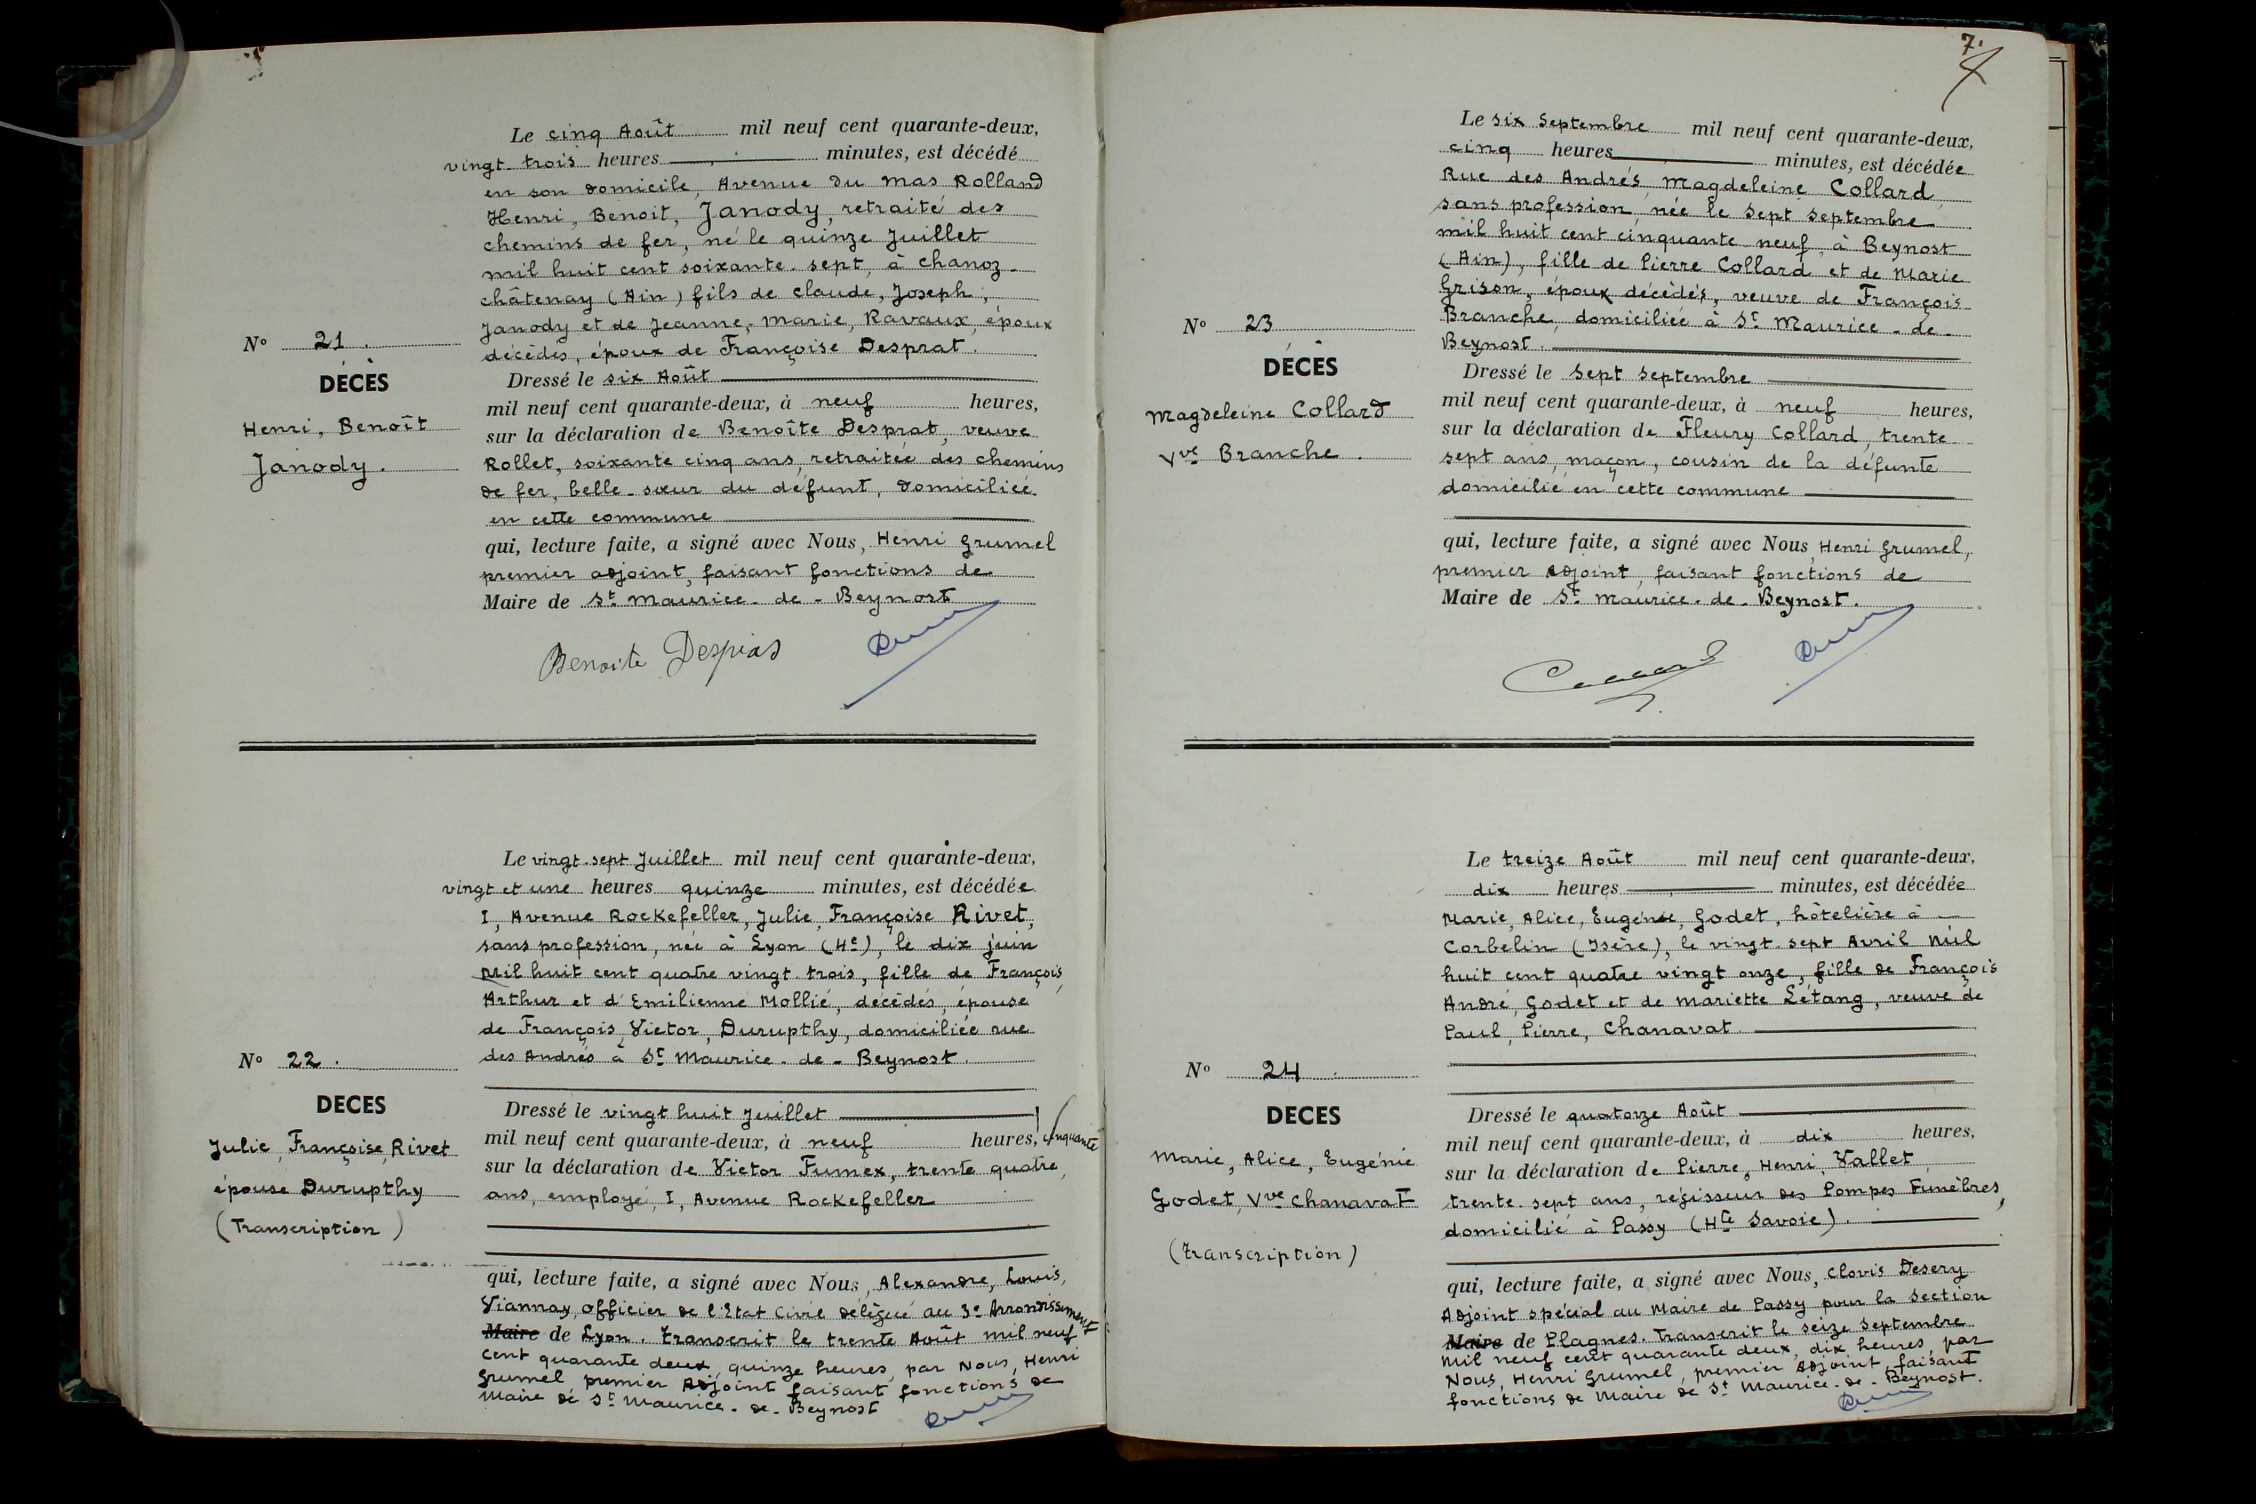 Le cinq Août mil neuf cent quarante-deux,
vingt-trois heures minutes, est décédé
en son domicile, Avenue du Mas Rolland
Henri, Benoit, Janody, retraité des
chemins de fer, né le quinze Juillet
mil huit cent soixante-sept, à Chanoz-
châtenay (Ain) fils de Claude, Joseph,
Janody et de Jeanne, Marie, Ravaux, époux
décédés, époux de Françoise Desprat.
N° 21.
DÉCÈS
Henri, Benoît
Janody.
Dressé le six Août
mil neuf cent quarante-deux, à neuf heures,
sur la déclaration de Benoîte Desprat, veuve
Rollet, soixante cinq ans, retraitée des chemins
de fer, belle-sœur du défunt, domiciliée
en cette commune
qui, lecture faite, a signé avec Nous, Henri Grumel
premier adjoint, faisant fonctions de
Maire de St Maurice-de-Beynost
Benoite Despras
Le vingt-sept Juillet mil neuf cent quarante-deux,
vingt et une heures quinze minutes, est décédée
I, Avenue Rockefeller, Julie, Françoise Rivet,
sans profession, née à Lyon (4e), le dix juin
Mil huit cent quatre vingt-trois, fille de François,
Arthur et d'Emilienne Mollié, décédés, épouse
de François, Victor, Durupthy, domiciliée rue
des Andrés à St Maurice-de-Beynost.
N° 22.
DECES
Julie, Françoise, Rivet
épouse Durupthy
(Transcription)
Dressé le vingt huit Juillet
mil neuf cent quarante-deux, à neuf heures, cinquante
sur la déclaration de Victor Fumex, trente quatre,
ans, employé, I, Avenue Rockefeller
qui, lecture faite, a signé avec Nous, Alexandre, Louis,
Viannay, officier de l'Etat Civil délégué au 3e Arrondissement
Maire de Lyon. Transcrit le trente Août mil neuf
cent quarante deux, quinze heures, par Nous, Henri
Grumel premier Adjoint faisant fonctions de
Maire de St Maurice-de-Beynost
7.
Le six Septembre mil neuf cent quarante-deux,
cinq heures minutes, est décédée
Rue des Andrés Magdeleine Collard
sans profession, née le Sept Septembre
mil huit cent cinquante neuf, à Beynost
(Ain), fille de Pierre Collard et de Marie
Grison, époux décédés, veuve de François
Branche, domiciliée à St Maurice-de-
Beynost.
N° 23
DÉCÈS
Magdeleine Collard
Vve Branche.
Dressé le Sept Septembre
mil neuf cent quarante-deux, à neuf heures,
sur la déclaration de Fleury Collard, trente
sept ans, maçon, cousin de la défunte
domicilié en cette commune
qui, lecture faite, a signé avec Nous, Henri Grumel,
premier Adjoint, faisant fonctions de
Maire de St Maurice-de-Beynost.
Collard
Le treize Août mil neuf cent quarante-deux,
dix heures minutes, est décédée
Marie, Alice, Eugénie, Godet, hôtelière à
Corbelin (Isère), le vingt-sept Avril Mil
huit cent quatre vingt onze, fille de François
André, Godet et de Mariette Létang, veuve de
Paul, Pierre, Chanavat
N° 24
DECES
Marie, Alice, Eugénie
Godet, Vve Chanavat
(Transcription)
Dressé le quatorze Août
mil neuf cent quarante-deux, à dix heures,
sur la déclaration de Pierre, Henri, Vallet
trente-sept ans, régisseur des Pompes Funèbres,
domicilié à Passy (Hte Savoie).
qui, lecture faite, a signé avec Nous, Clovis Desery
Adjoint spécial au Maire de Passy pour la Section
Maire de Plagnes. Transcrit le seize Septembre
mil neuf cent quarante deux, dix heures, par
Nous, Henri Grumel, premier Adjoint, faisant
fonctions de Maire de St Maurice-de-Beynost.